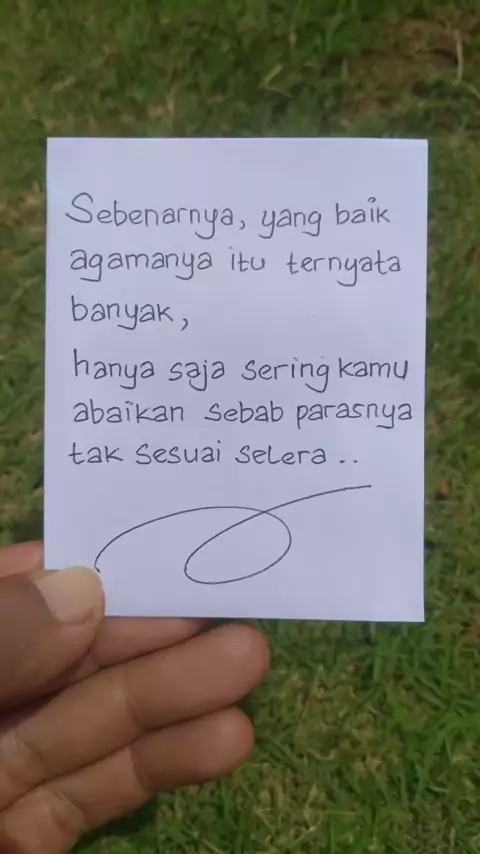 Sebenarnya, yang baik
agamanya itu ternyata
banyak,
hanya saja sering kamu
abaikan sebab parasnya
tak sesuai selera ..